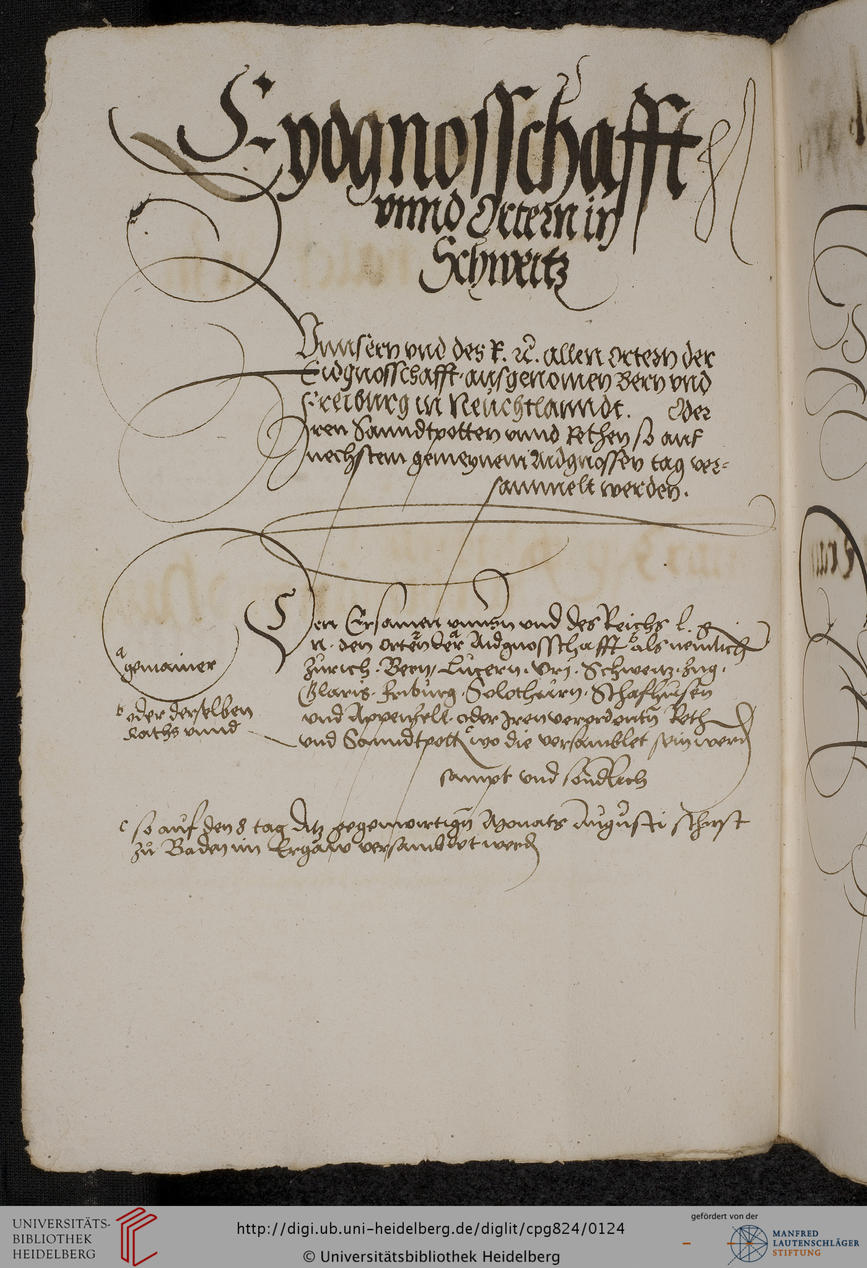 Eydgnosschafft
vnnd Ortern in
Schweitz
Vnnsern vnd des R. ꝛc. allen ortern der
Eidgnosschafft ausgenomen Bern vnd
Freiburg in Neuchtlanndt. Oder
Iren Sanndtpotten vnnd Rethen so auf
nechstem gemeynem Aidgnossen tag ver-
sammelt werden.
Den Ersamen vnnsern vnd des Reichs l. g.
n. den orten der Aidgnosschafft als nemlich
a
gemainer
b
Zurich. Bern. Lucern. Vri. Schweitz. Zug.
Glaris. Friburg. Solothurn. Schafhusen
b oder derselben
Raths vnnd
vnd Appenzell. oder Iren verordentn Reth
vnd Sanndtpottn c wo die versamblet sein werdn
sampt vnd sondrlich
c so auf den 8 tag ditz gegenwirtign Monats Augusti schirst
zu Baden im Ergaw versamblet werdn
UNIVERSITÄTS-
BIBLIOTHEK
HEIDELBERG
http://digi.ub.uni-heidelberg.de/diglit/cpg824/0124
© Universitätsbibliothek Heidelberg
gefördert von der
MANFRED
LAUTENSCHLÄGER
STIFTUNG